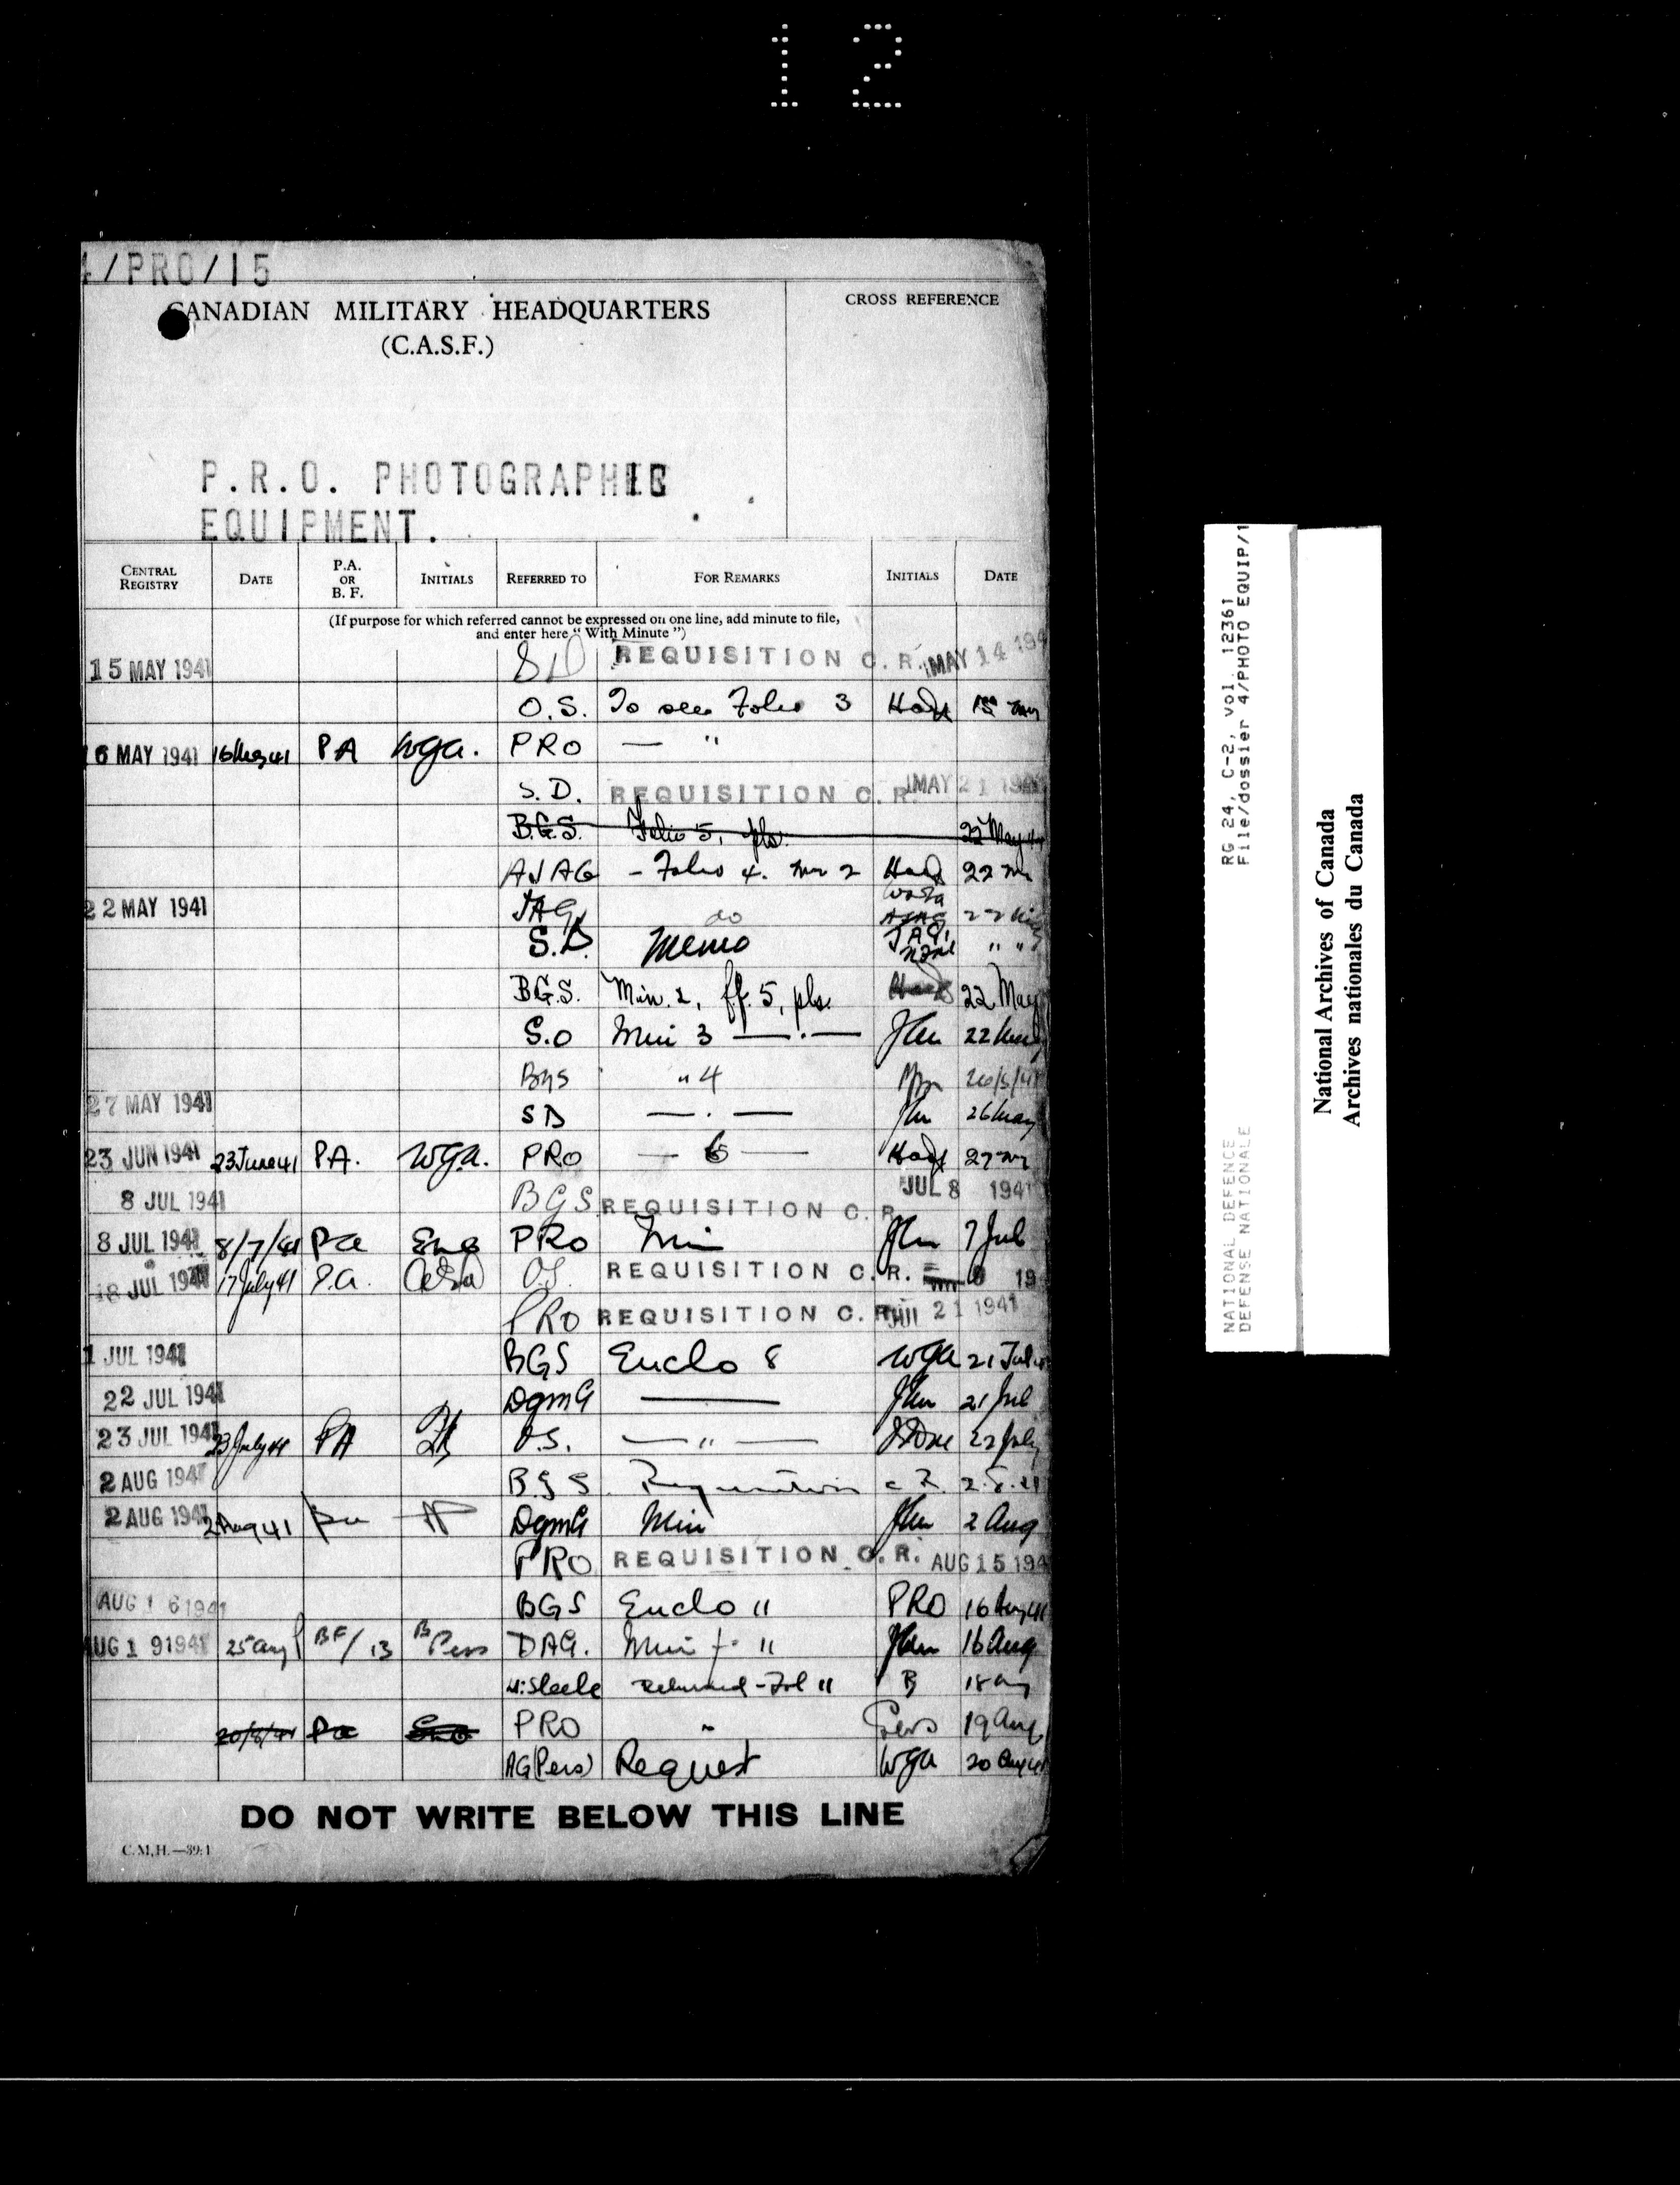 12
4/PRO/15
CANADIAN MILITARY HEADQUARTERS
(C.A.S.F.)
CROSS REFERENCE
P.R.O. PHOTOGRAPHIC
EQUIPMENT.
CENTRAL REGISTRY DATE P.A. OR B. F. INITIALS REFERRED TO FOR REMARKS INITIALS DATE
(If purpose for which referred cannot be expressed on one line, add minute to file,
and enter here "With Minute")
15 MAY 1941 SD REQUISITION C. R. MAY 14 194
O.S. To see Folio 3
6 MAY 1941 16 May 41 PA wga. PRO — "
S. D. REQUISITION C. R. MAY 21 194
B.G.S. Folio 5, pls. 22 May
AJAG - Folio 4. 22
22 MAY 1941 JAG do 22
S.D. Memo JAG " "
B.G.S. Min. 2, ff. 5, pls. 22 May
S.D Min 3 — . — 22 May
BGS " 4 26/5/41
27 MAY 1941 SD — . — 26 May
23 JUN 1941 23 June 41 P.A. wga. PRO — 6 — 27
8 JUL 1941 BGS REQUISITION C. R. JUL 8 1941
8 JUL 1941 8/7/41 Pa PRO Min 7 Jul
18 JUL 1941 17 July 41 P.a. O.S. REQUISITION C. R. 19
PRO REQUISITION C. R. JUL 21 1941
1 JUL 1941 BGS Enclo 8 wga 21 Jul
22 JUL 1941 DQMG — 21 Jul
23 JUL 1941 23 July 41 PA O.S. — " — 22 July
2 AUG 1941 B.G.S. Requisition C R. 2.8.41
2 AUG 1941 2 Aug 41 pa DQMG Min 2 Aug
PRO REQUISITION C. R. AUG 15 194
AUG 16 1941 BGS Enclo 11 PRO 16 Aug 41
AUG 19 1941 25 Aug BF/13 Pers DAG. Min 11 16 Aug
Returned - Fol 11 B 18
20/8/41 Pa PRO " Pers 19 Aug
AG (Pers) Request wga 20 Aug 41
DO NOT WRITE BELOW THIS LINE
C.M.H.—39:1
RG 24, C-2, vol. 12361
File/dossier 4/PHOTO EQUIP/1
NATIONAL DEFENCE
DEFENSE NATIONALE
National Archives of Canada
Archives nationales du Canada